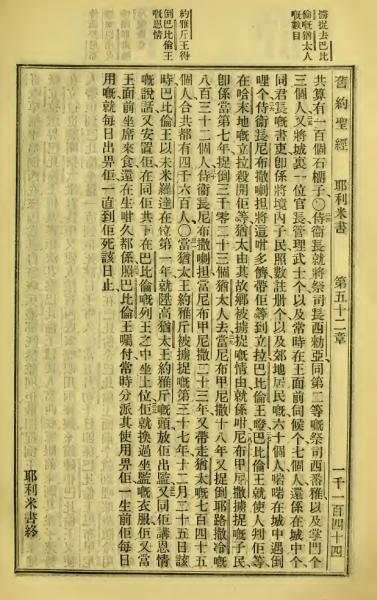 擄捉去巴比
倫嘅猶太人
嘅數目
約雅斤王得
倒巴比倫王
嘅恩情
舊約聖經 耶利米書 第五十二章 一千一百四十四
共算有一百個石榴子〇侍衛長就將祭司長西勅亞同第二等嘅祭司西番雅以及掌門个
三個人又將城裏一位官長管理武士个以及常時在王面前伺候个七個人還係在城中个
同君長嘅書吏卽係將境內子民照數註册个以及郊地居民嘅六十個人啱啱在城中遇倒
哩个侍衛長尼布撒喇担將這咁多儕帶佢等到立拉巴比倫王瞪巴比倫王就使人刑佢等
在哈末地嘅立拉殺開佢等猶太由其故鄉被擄捉嘅情由就係咁尼布甲尼撒擄捉嘅子民
卽係當第七年捉倒三千零二十三個猶太人去當尼布甲尼撒十八年又捉倒耶路撒冷嘅
八百三十二個人侍衛長尼布撒喇担當尼布甲尼撒二十三年又帶走猶太嘅七百四十五
個人合共都有四千六百人〇當猶太王約雅斤被擄捉嘅第三十七年十二月二十五日該
時巴比倫王以未米羅達在位第一年就陞高猶太王約雅斤嘅頭放佢出監又同佢講恩情
嘅說話又安置佢在同佢共下在巴比倫嘅列王之中坐上位佢就換過坐監嘅衣服佢又當
王面前坐席來食還在生咁久都係照巴比倫王囑付常時分派其使用畀佢一生前佢每日
用嘅就每日出畀佢一直到佢死該日止
耶利米書終